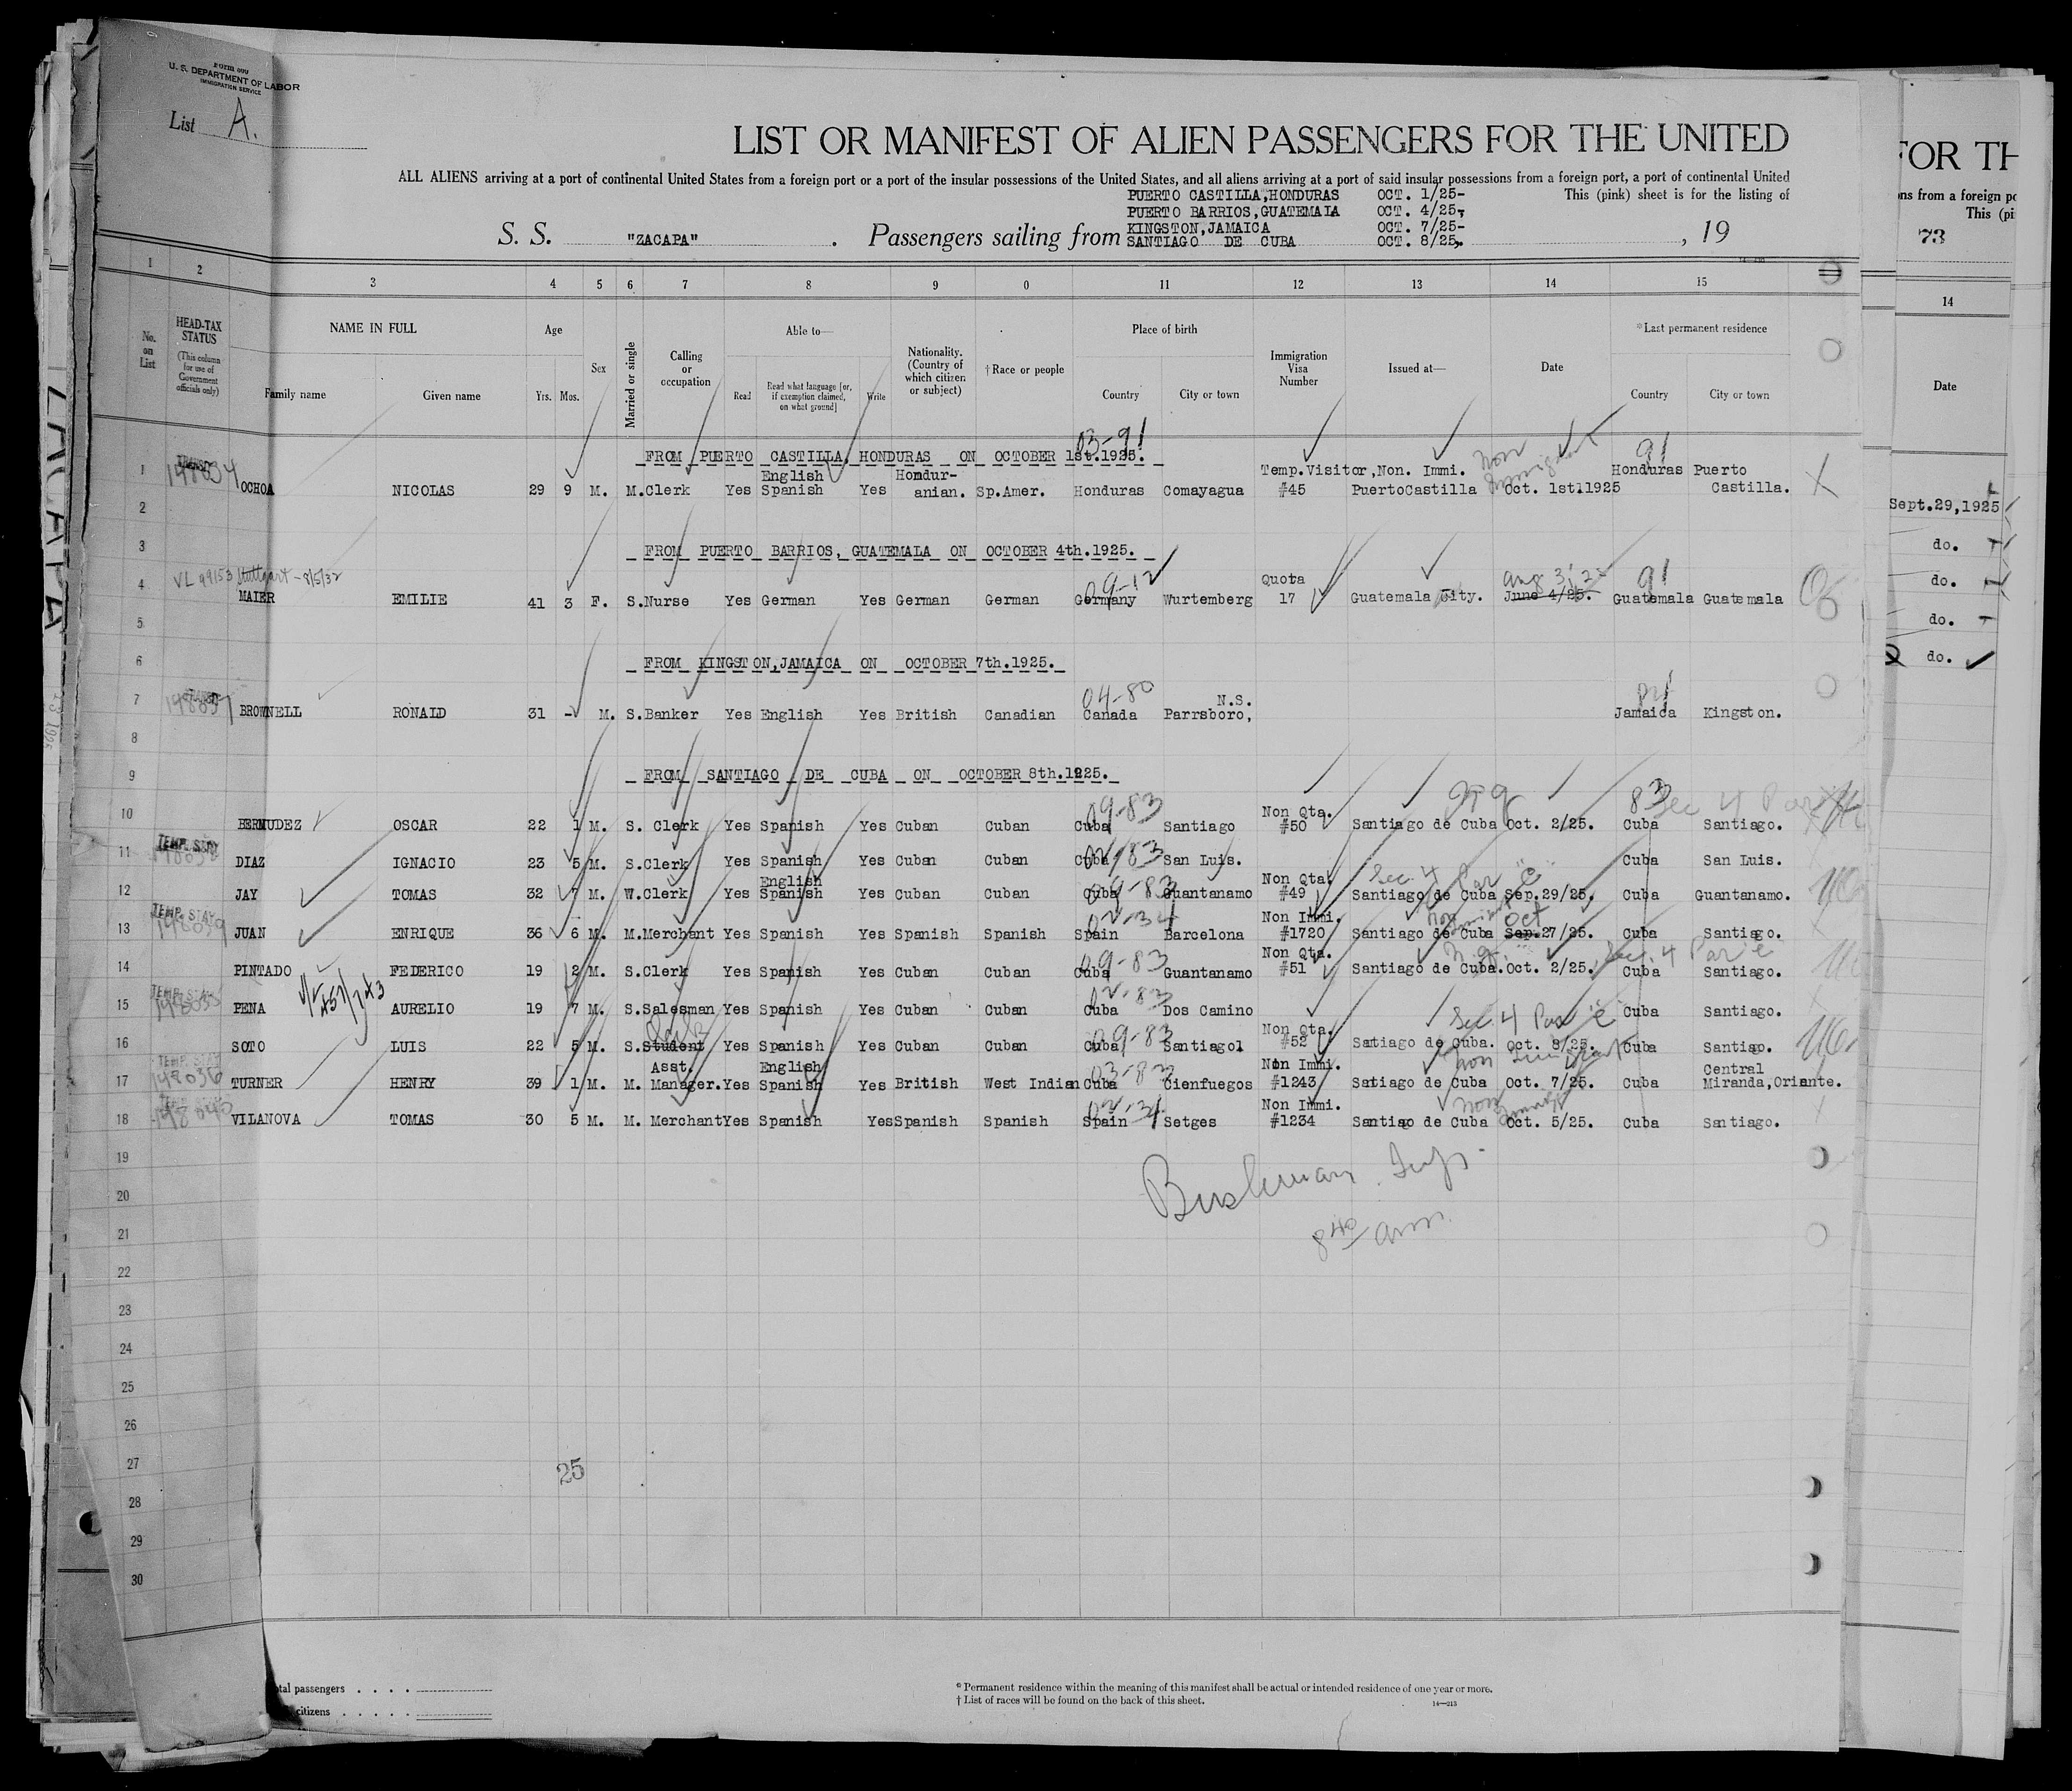 FORM 500
U. S. DEPARTMENT OF LABOR
IMMIGRATION SERVICE
List A.
LIST OR MANIFEST OF ALIEN PASSENGERS FOR THE UNITED
ALL ALIENS arriving at a port of continental United States from a foreign port or a port of the insular possessions of the United States, and all aliens arriving at a port of said insular possessions from a foreign port, a port of continental United
This (pink) sheet is for the listing of
PUERTO CASTILLA,HONDURAS OCT. 1/25-
PUERTO BARRIOS,GUATEMALA OCT. 4/25-
KINGSTON,JAMAICA OCT. 7/25-
S. S. "ZACAPA" . Passengers sailing from SANTIAGO DE CUBA OCT. 8/25. , 19
1 2 3 4 5 6 7 8 9 0 11 12 13 14 15
No. on List
HEAD-TAX STATUS
(This column for use of Government officials only)
NAME IN FULL
Family name Given name
Age
Yrs. Mos.
Sex
Married or single
Calling or occupation
Able to—
Read
Read what language [or, if exemption claimed, on what ground]
Write
Nationality. (Country of which citizen or subject)
†Race or people
Place of birth
Country City or town
Immigration Visa Number
Issued at—
Date
*Last permanent residence
Country City or town
FROM PUERTO CASTILLA, HONDURAS ON OCTOBER 1st.1925.
03-91
1 198034 OCHOA NICOLAS 29 9 M. M. Clerk Yes English Spanish Yes Hondur-anian. Sp.Amer. Honduras Comayagua Temp.Visitor,Non. Immi. #45 PuertoCastilla Oct. 1st.1925 Non Immigrant 91 Honduras Puerto Castilla. X
2
3 FROM PUERTO BARRIOS, GUATEMALA ON OCTOBER 4th.1925.
VL 99153 Stuttgart - 8/5/32
4 MAIER EMILIE 41 3 F. S. Nurse Yes German Yes German German 09-12 Germany Wurtemberg Quota 17 Guatemala City. June 4/25. 91 Guatemala Guatemala
5
6 FROM KINGSTON,JAMAICA ON OCTOBER 7th.1925.
7 BROWNELL RONALD 31 - M. S. Banker Yes English Yes British Canadian 04-80 Canada Parrsboro, N.S. Jamaica Kingston.
8
9 FROM SANTIAGO DE CUBA ON OCTOBER 8th.1925.
10 BERMUDEZ OSCAR 22 1 M. S. Clerk Yes Spanish Yes Cuban Cuban 09-83 Cuba Santiago Non Qta. #50 Santiago de Cuba Oct. 2/25. 83 Cuba Santiago.
11 TEMP. STAY DIAZ IGNACIO 23 5 M. S. Clerk Yes Spanish Yes Cuban Cuban 02-83 Cuba San Luis. Cuba San Luis.
12 JAY TOMAS 32 7 M. W. Clerk Yes English Spanish Yes Cuban Cuban 09-83 Cuba Guantanamo Non Qta. #49 Santiago de Cuba Sep.29/25. Sec. 4 Par "C" Cuba Guantanamo.
13 TEMP. STAY 198039 JUAN ENRIQUE 36 6 M. M. Merchant Yes Spanish Yes Spanish Spanish 02-34 Spain Barcelona Non Immi. #1720 Santiago de Cuba Sep.27/25. Oct Cuba Santiago.
14 PINTADO FEDERICO 19 2 M. S. Clerk Yes Spanish Yes Cuban Cuban 09-83 Cuba Guantanamo Non Qta. #51 Santiago de Cuba. Oct. 2/25. Cuba Santiago.
15 TEMP. STAY PENA AURELIO 19 7 M. S. Salesman Yes Spanish Yes Cuban Cuban 02-83 Cuba Dos Camino Cuba Santiago.
16 SOTO LUIS 22 5 M. S. Student Yes Spanish Yes Cuban Cuban 09-83 Cuba Santiagol Non Qta. #52 Satiago de Cuba. Oct. 8/25. Sec. 4 Par "C" Cuba Santiago.
17 TEMP. STAY 198036 TURNER HENRY 39 1 M. M. Asst. Manager. Yes English Spanish Yes British West Indian 03-83 Cuba Cienfuegos Non Immi. #1243 Satiago de Cuba Oct. 7/25. Non Immigrant Cuba Central Miranda,Oriante.
18 VILANOVA TOMAS 30 5 M. M. Merchant Yes Spanish Yes Spanish Spanish 02-34 Spain Setges Non Immi. #1234 Santiago de Cuba Oct. 5/25. Non Immigt Cuba Santiago.
19
20
21
22
23
24
25
26
27
28
29
30
8 40 am
25
Total passengers . . . .
citizens . . . . .
* Permanent residence within the meaning of this manifest shall be actual or intended residence of one year or more.
† List of races will be found on the back of this sheet.
14—213
FOR TH
ons from a foreign po
This (pi
73
14
Date
Sept.29,1925
do.
do.
do.
do.